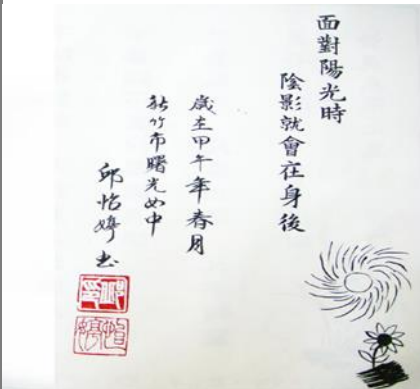 面對陽光時
陰影就會在身後
歲在甲午年春月
新竹市曙光女中
邱怡婷 书